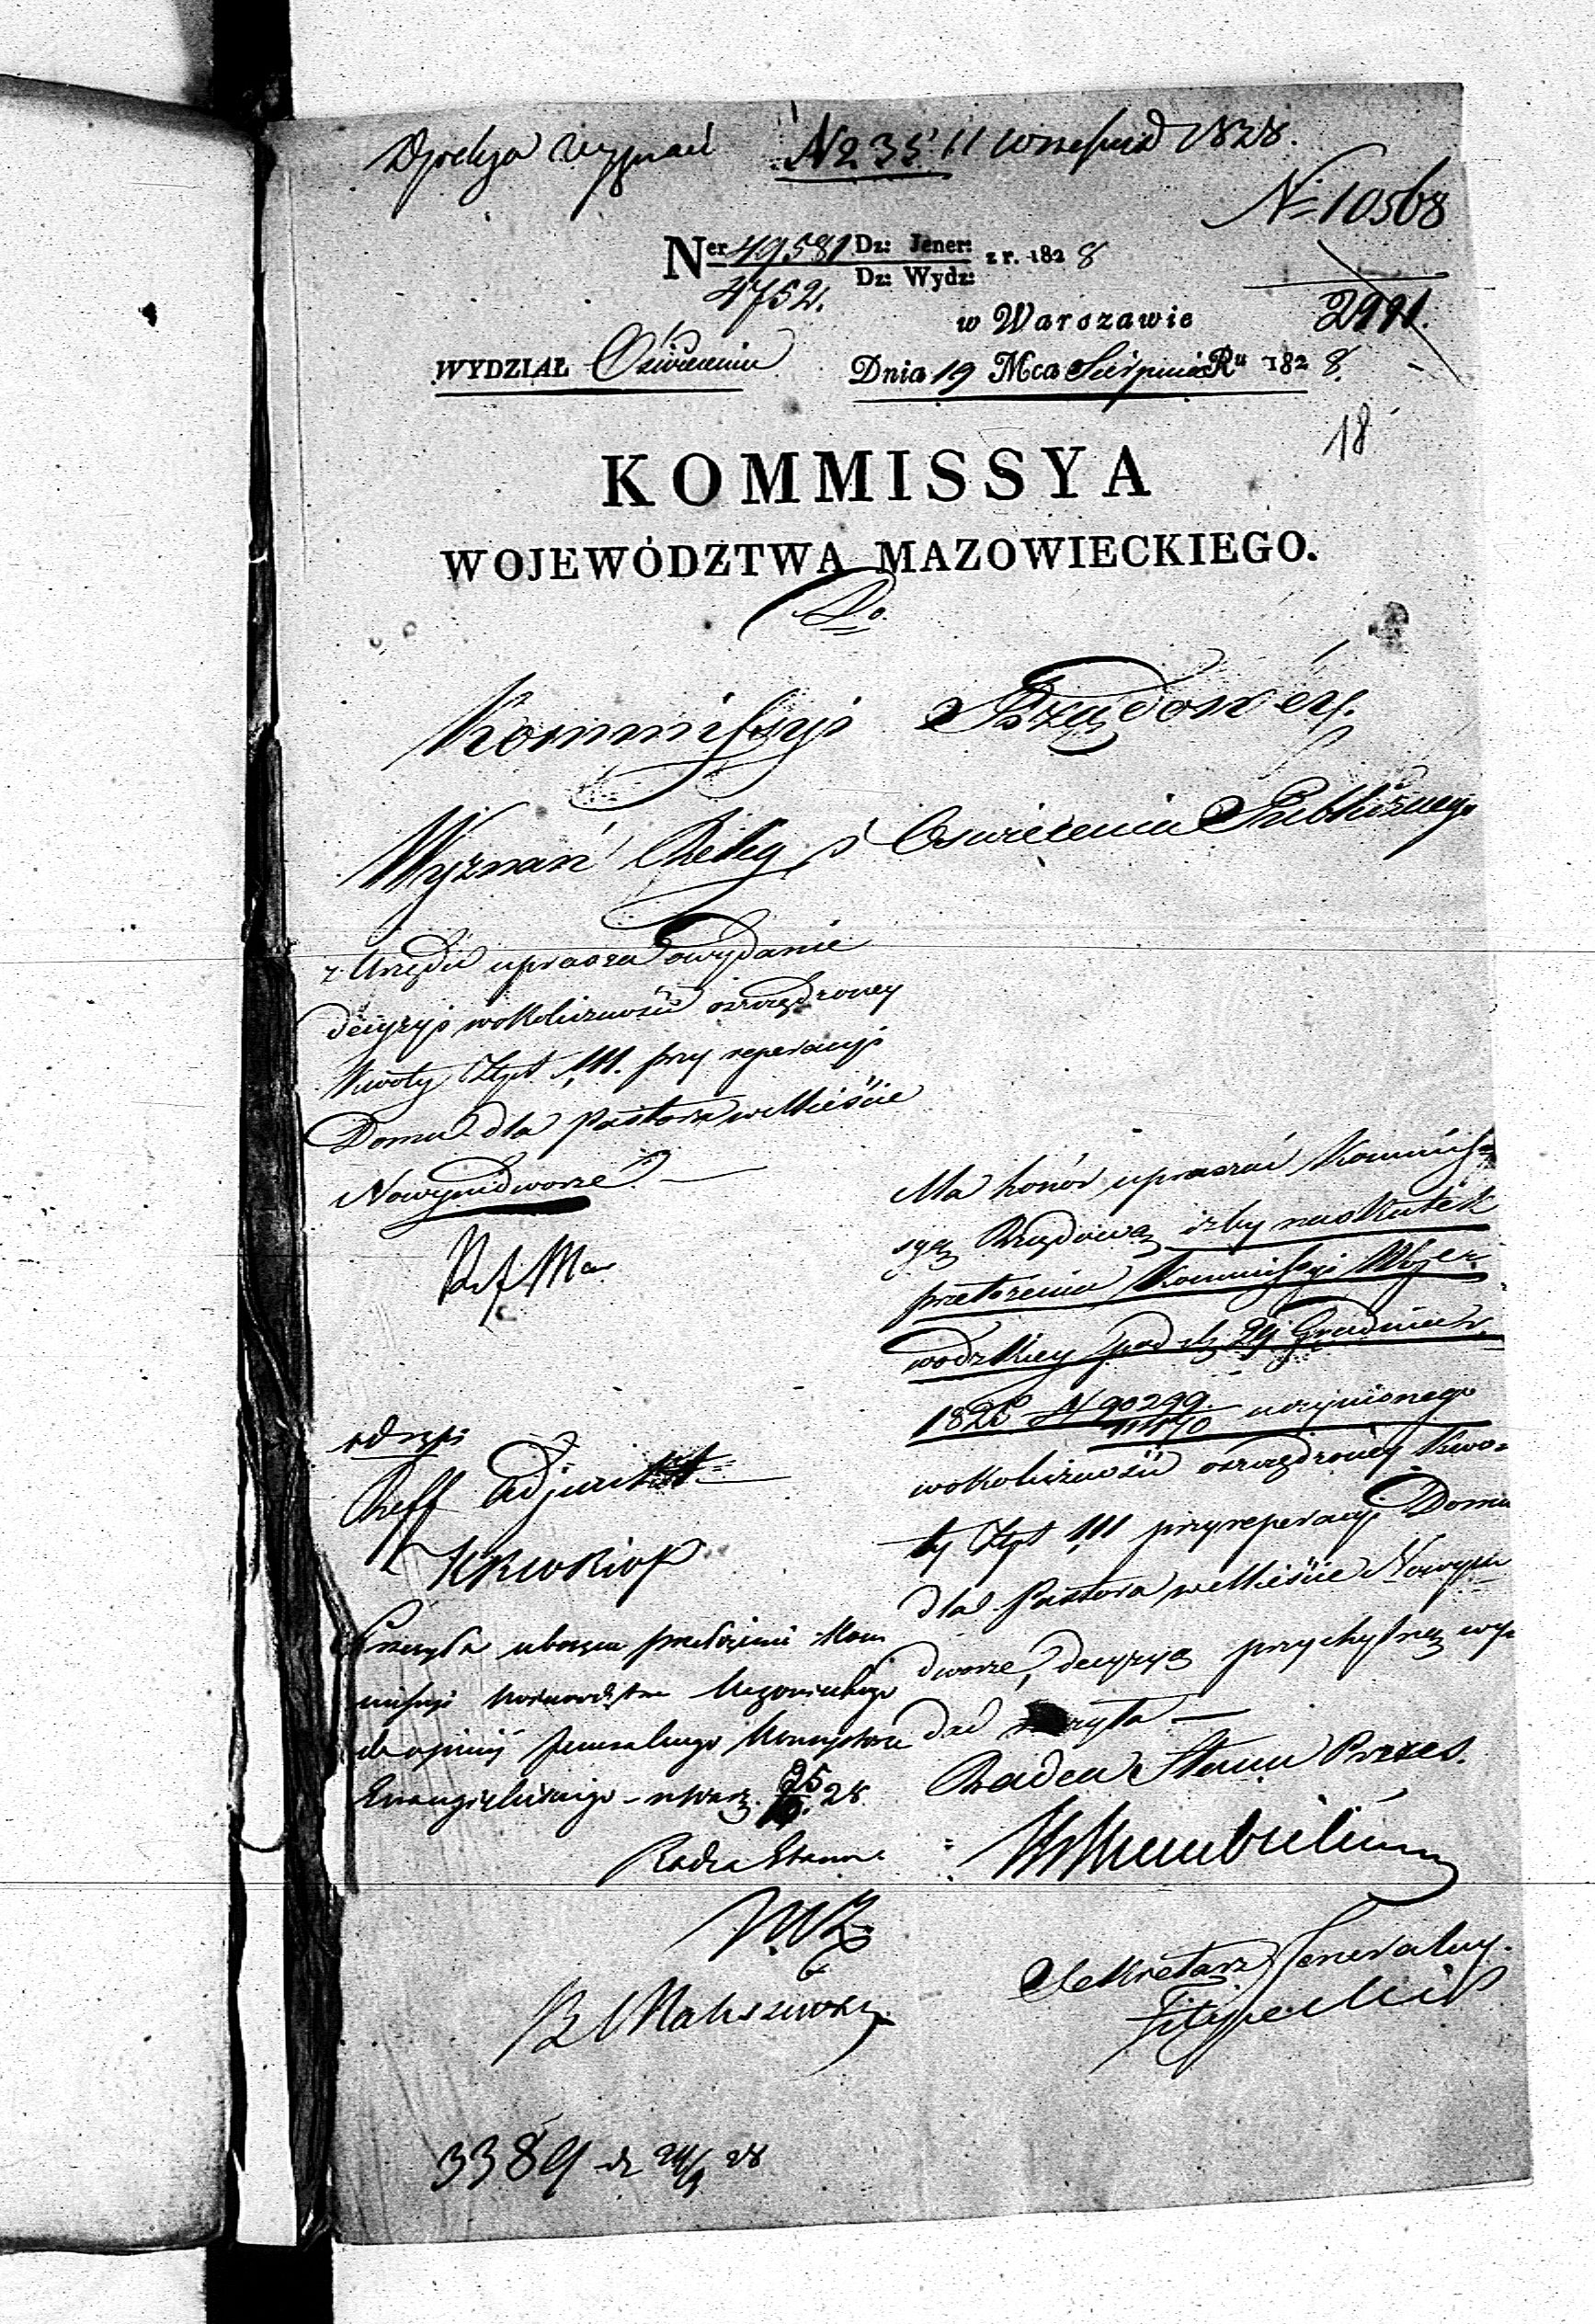 Dyrekcja Wyznań N 235 11 Września 1828.
N 10568
2991.
Ner 49581 Dz: Jener: z r. 1828
4752. Dz: Wydz:
w Warszawie
WYDZIAŁ Oświecenia Dnia 19 Mca Sierpnia Ru 1828.
18
KOMMISSYA
WOJEWÓDZTWA MAZOWIECKIEGO.
Do
Kommissyi Rządowéy
Wyznań Relig i Oświecenia Publicznego
z Urzędu uprasza o wydanie
decyzyi w okoliczności oszczędzoney
kwoty Złpt 111. przy reperacyi
Domu dla Pastora w Mieście
Nowymdworze
Ma honór upraszać Kommis=
syą Rządową iżby na skutek
przełożenia Kommissyi Woje=
wódzkiey pod d. 29 Grudnia r.
1826 N 90299 uczynionego
w okoliczności oszczędzoney kwo=
ty Złpt 111 przy reperacyi Domu
dla Pastora w Mieście Nowym
dworze, decyzyą przychylną wy=
dać raczyła
Radca Stanu Prezes.
Sekretarz Jeneralny.
Filipecki
odsyła
Reff Adjunkt
Przesyła uboczne przełożenie Kom
missyi Województwa Mazowieckiego
do opinij Jeneralnego Konsystorza
Ewangielickiego w Warsz. 25 28
Radca Stanu
3389 d. 24/9 28